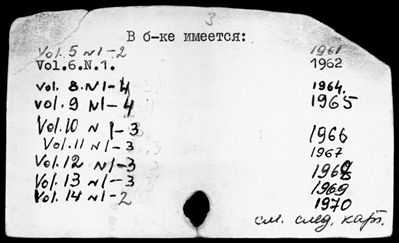 3
В б-ке имеется:
Vol. 5 N1-2 1961
Vol.6.N.1. 1962
vol. 8. N1-4 1964.
vol. 9 N1-4 1965
Vol. 10 N 1-3 1966
Vol. 11 N1-3 1967
Vol. 12 N1-3 1968
Vol. 13 N1-3 1969
Vol. 14 N1-2 1970
см. след. карт.